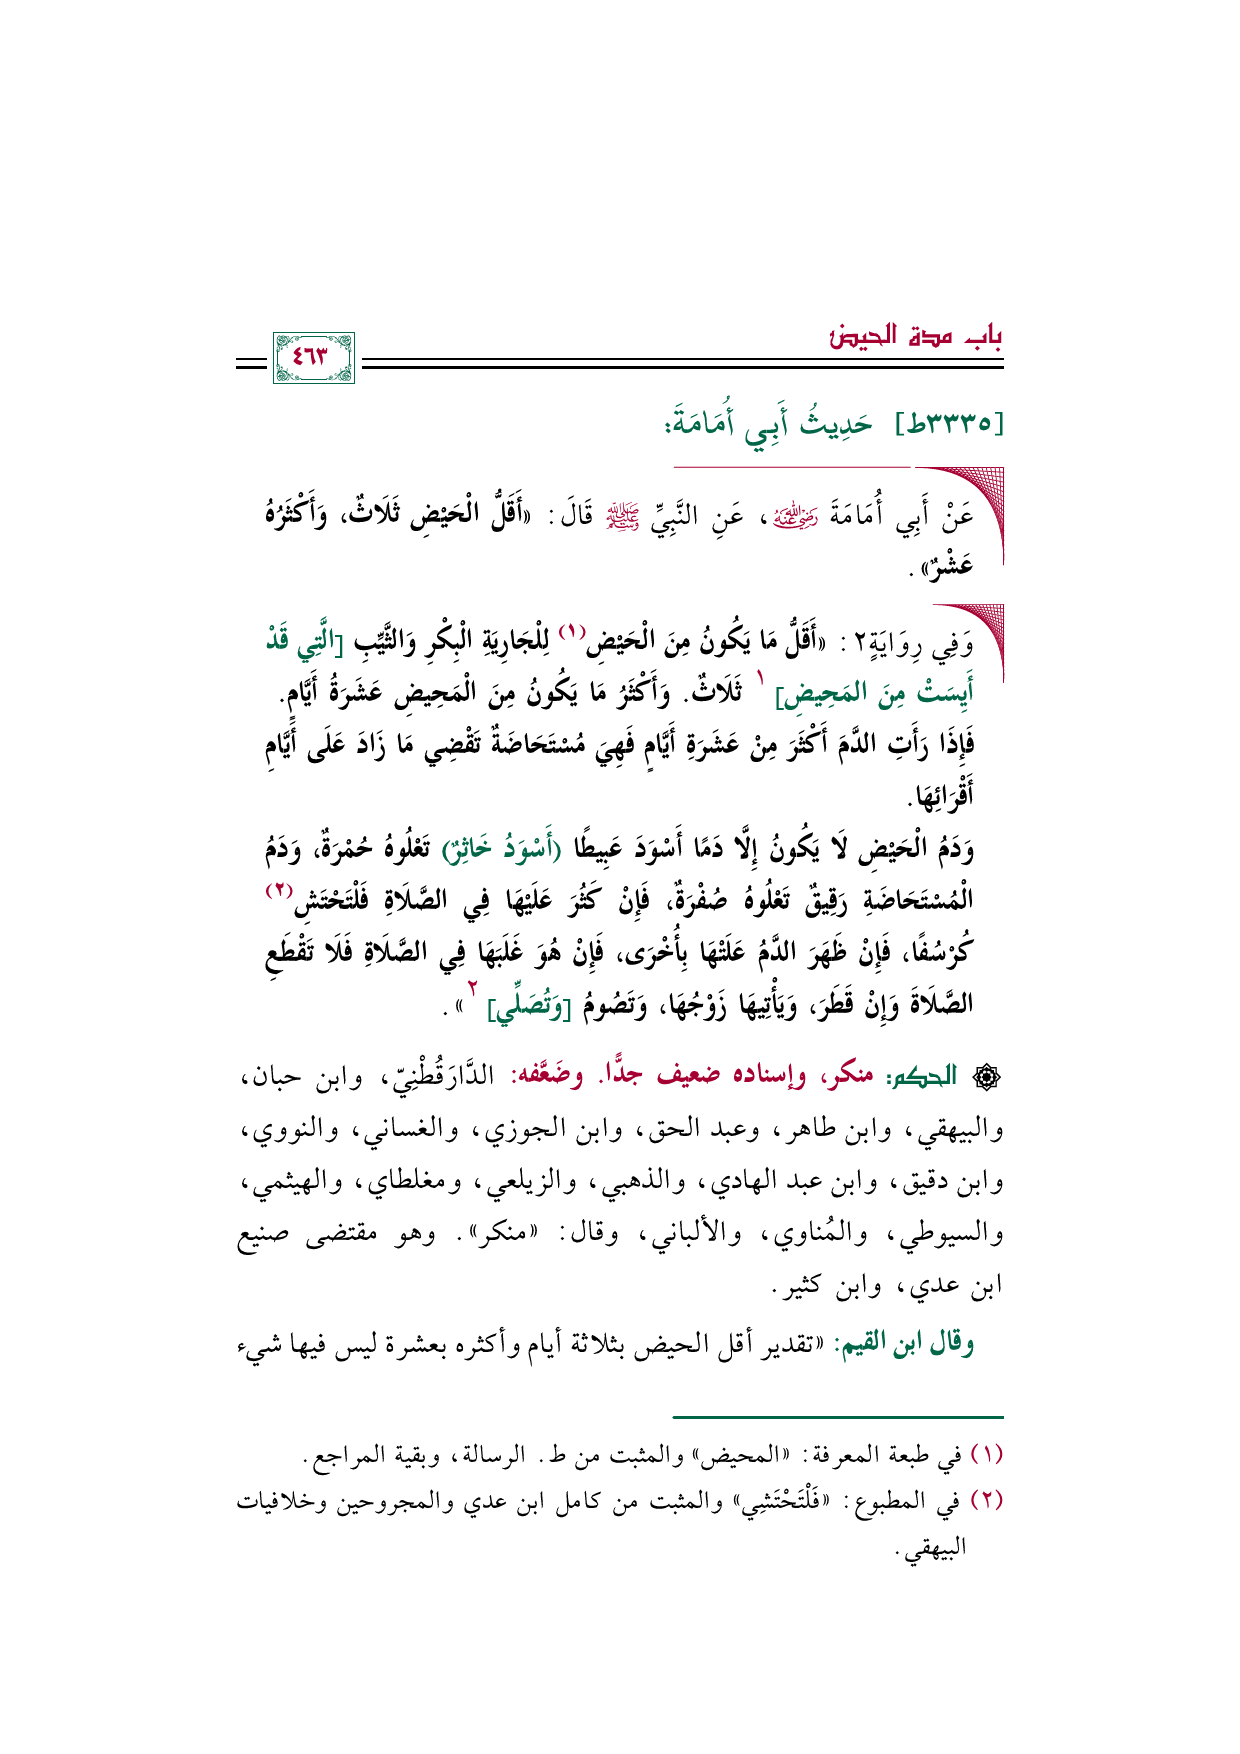 باب مدة الحيض
٤٦٣
[٣٣٣٥ط] حَدِيثُ أَبِي أُمَامَةَ:
عَنْ أَبِي أُمَامَةَ رضي الله عنه، عَنِ النَّبِيِّ ﷺ قَالَ: «أَقَلُّ الْحَيْضِ ثَلَاثٌ، وَأَكْثَرُهُ
عَشْرٌ».
وَفِي رِوَايَةٍ٢: «أَقَلُّ مَا يَكُونُ مِنَ الْحَيْضِ(١) لِلْجَارِيَةِ الْبِكْرِ وَالثَّيِّبِ [الَّتِي قَدْ
أَيِسَتْ مِنَ المَحِيضِ]١ ثَلَاثٌ. وَأَكْثَرُ مَا يَكُونُ مِنَ الْمَحِيضِ عَشَرَةُ أَيَّامٍ.
فَإِذَا رَأَتِ الدَّمَ أَكْثَرَ مِنْ عَشَرَةِ أَيَّامٍ فَهِيَ مُسْتَحَاضَةٌ تَقْضِي مَا زَادَ عَلَى أَيَّامِ
أَقْرَائِهَا.
وَدَمُ الْحَيْضِ لَا يَكُونُ إِلَّا دَمًا أَسْوَدَ عَبِيطًا (أَسْوَدُ خَاثِرٌ) تَعْلُوهُ حُمْرَةٌ، وَدَمُ
الْمُسْتَحَاضَةِ رَقِيقٌ تَعْلُوهُ صُفْرَةٌ، فَإِنْ كَثُرَ عَلَيْهَا فِي الصَّلَاةِ فَلْتَحْتَشِ(٢)
كُرْسُفًا، فَإِنْ ظَهَرَ الدَّمُ عَلَتْهَا بِأُخْرَى، فَإِنْ هُوَ غَلَبَهَا فِي الصَّلَاةِ فَلَا تَقْطَعِ
الصَّلَاةَ وَإِنْ قَطَرَ، وَيَأْتِيهَا زَوْجُهَا، وَتَصُومُ [وَتُصَلِّي]٢».
الحكم: منكر، وإسناده ضعيف جدًّا. وضَعَّفه: الدَّارَقُطْنِيّ، وابن حبان،
والبيهقي، وابن طاهر، وعبد الحق، وابن الجوزي، والغساني، والنووي،
وابن دقيق، وابن عبد الهادي، والذهبي، والزيلعي، ومغلطاي، والهيثمي،
والسيوطي، والمُناوي، والألباني، وقال: «منكر». وهو مقتضى صنيع
ابن عدي، وابن كثير.
وقال ابن القيم: «تقدير أقل الحيض بثلاثة أيام وأكثره بعشرة ليس فيها شيء
(١) في طبعة المعرفة: «المحيض» والمثبت من ط. الرسالة، وبقية المراجع.
(٢) في المطبوع: «فَلْتَحْتَشِي» والمثبت من كامل ابن عدي والمجروحين وخلافيات
البيهقي.